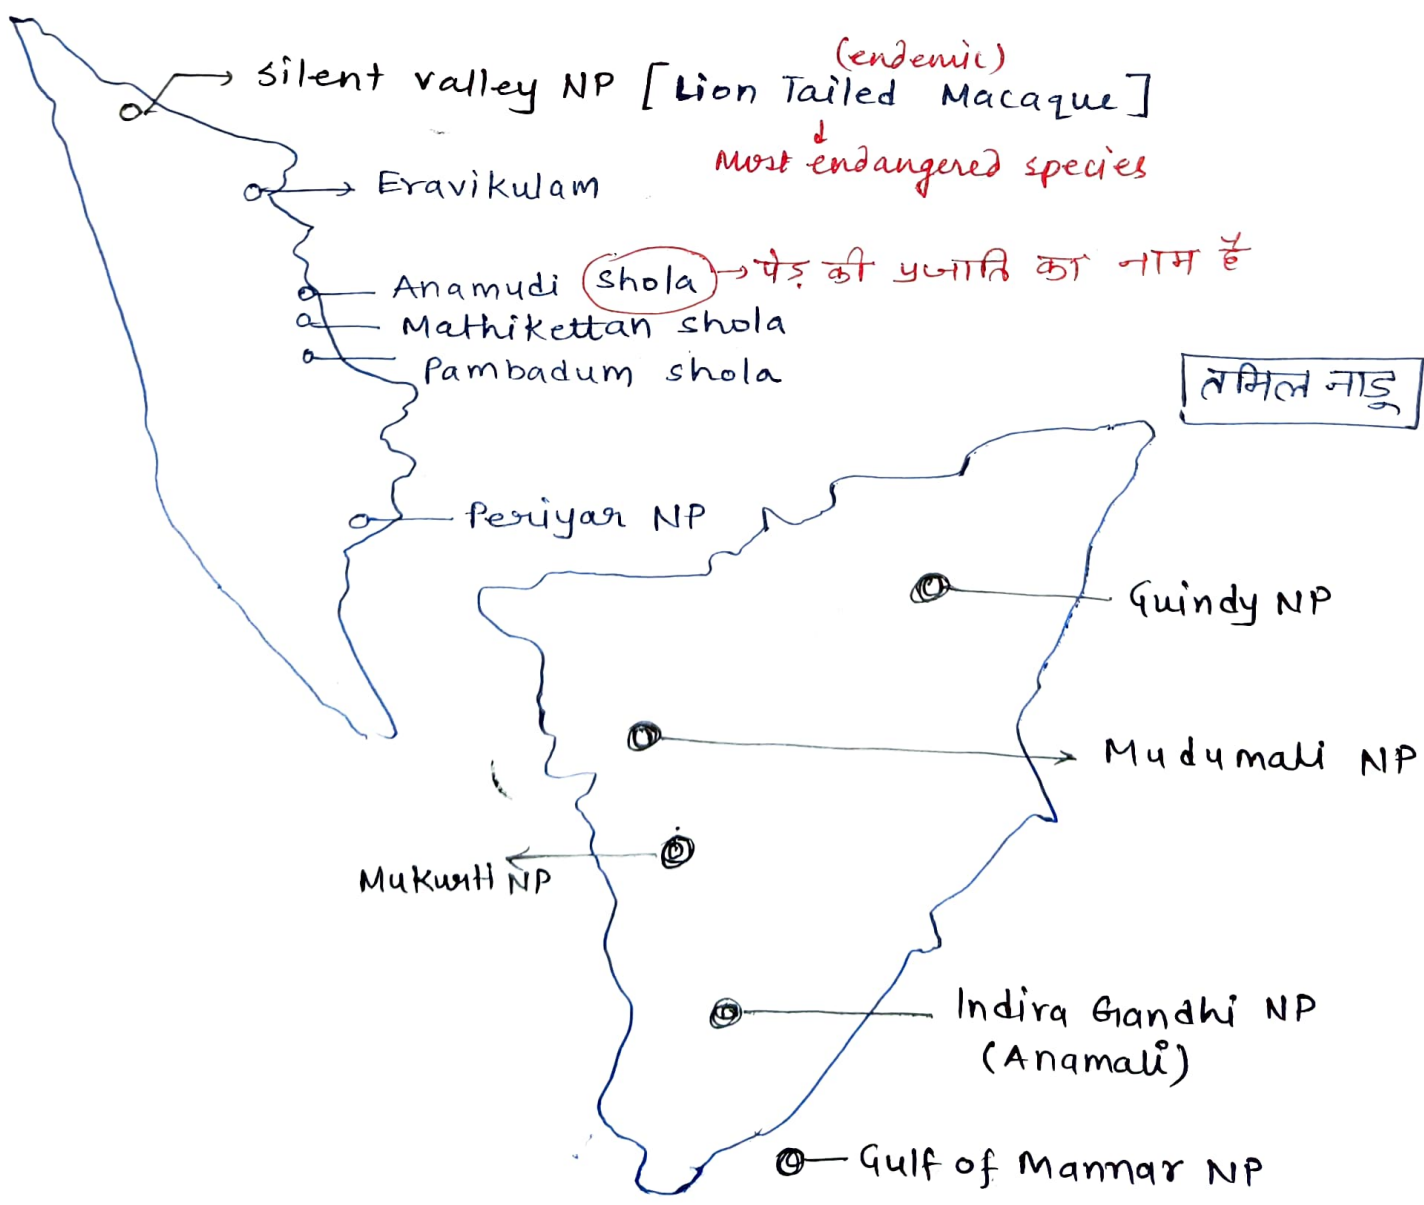 (endemic)
Silent valley NP [Lion Tailed Macaque]
Most endangered species
Eravikulam
Anamudi shola → पेड़ की प्रजाति का नाम है
Mathikettan shola
Pambadum shola
तमिल नाडू
Periyar NP
Guindy NP
Mudumali NP
Mukurti NP
Indira Gandhi NP
(Anamali)
Gulf of Mannar NP